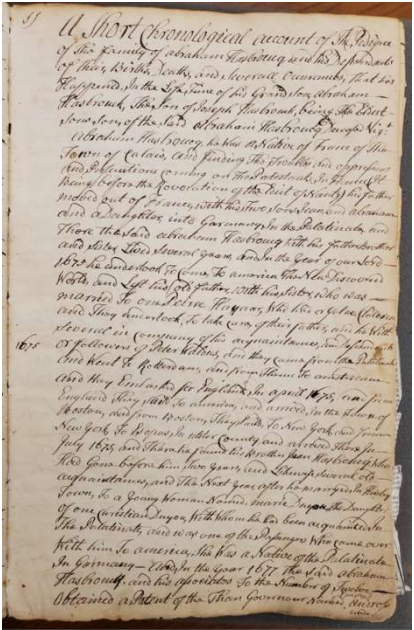 A Short Chronological account of The Pedigree
of The family of abraham Hasbroucq and his Descendants
of their Births, Deaths, and Severall that has
Happened In the Life Time of his Grand Son abraham
Hasbrouck, The Son of Joseph Hasbrouck, being The
Sons Son, of the Said Abraham Hasbroucq
Abraham Hasbroucq, he was a Native of France of The
Town of Calais, and finding The Trouble and oppressions
And Persecutions Coming on The Protestants, In France (It
Being before the Revocation of the Edict of Nantz) his father
moved out of France, with his Two Sons Jean and abraham
and a Daughter, into Garmany In the Palatinate, and
There the said abraham Hasbroucq with his father Brother
and Sister, Lived Several Years, and In the Year of our Lord
1675 he undertook To Come To america The New Discovered
World, and Left his old father, with his Sister, who was
married To one Pierre Hayaar, Who had or Got Children
and They undertook To take Care of their father, and he Went
several in Company of his acquaintances, and
1675 or followers of Peter and they Came from the Palatinate
and Went To Roterdam, and from Thence To amsterdam
and they Embarked for England, In april 1675, and from
England They Sailed To america, and arrived In the Town of
Boston, and from Boston, They Sailed To New York, and from
New York To Esopus, In ulster County and arrived There In
July 1675, and There he found his Brother Jean Hasbroucq Who
Had Gone before him Two years, and Likewise several old
acquaintances, and The Next Year after he married, In Hurley
Town, To a Young Woman Named, maria Duyou The Daughter
of one Christian Duyou, With Whom he had been acquainted In
The Palatinate, and was one of the Passengers Who Came over
With him To america, She Was a Native of the Palatinate
In Germany And, In the Year 1677 The said abraham
Hasbroucq and his associates To the Number of Twelve
Obtained a Patent of the Then Governour Named, Andross